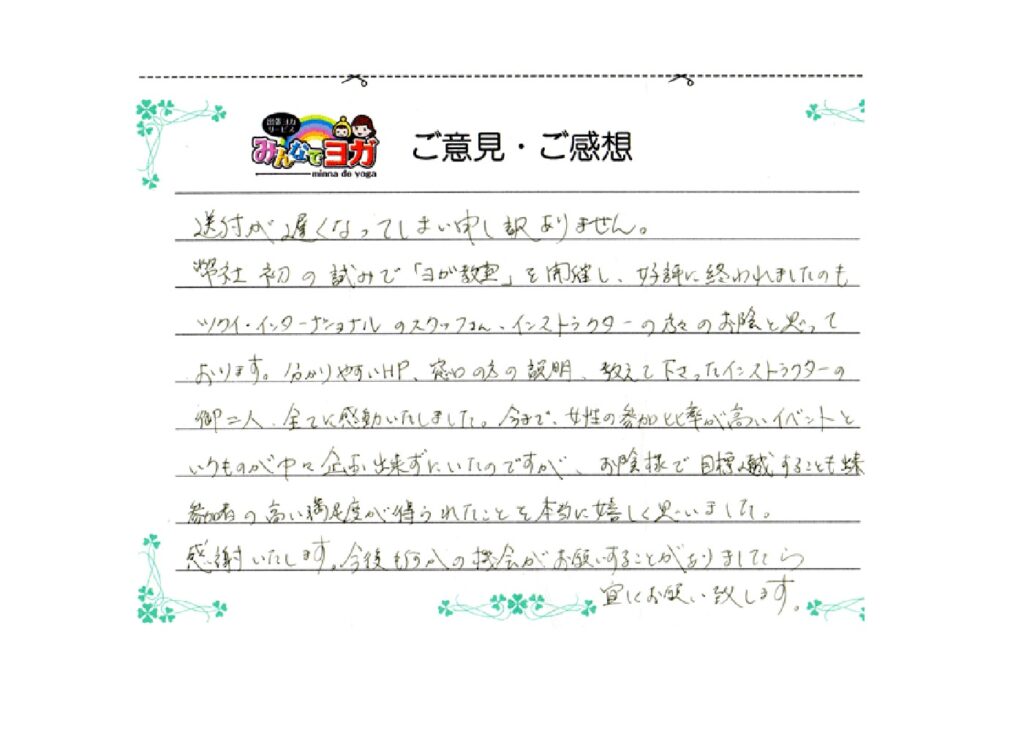 出張ヨガ
サービス
みんなでヨガ
minna de yoga
ご意見・ご感想
送付が遅くなってしまい申し訳ありません。
弊社初の試みで「ヨガ教室」を開催し、好評に終われましたのも
ツクイ・インターナショナルのスタッフさん、インストラクターの方々のお陰と思って
おります。分かりやすいHP、窓口の方の説明、教えて下さったインストラクターの
御二人、全てに感動いたしました。今まで、女性の参加比率が高いイベントと
いうものが中々企画出来ずにいたのですが、お陰様で目標達成することも出来
参加者の高い満足度が得られたことを本当に嬉しく思いました。
感謝いたします。今後も何かの機会がお願いすることがありましたら
宜しくお願い致します。